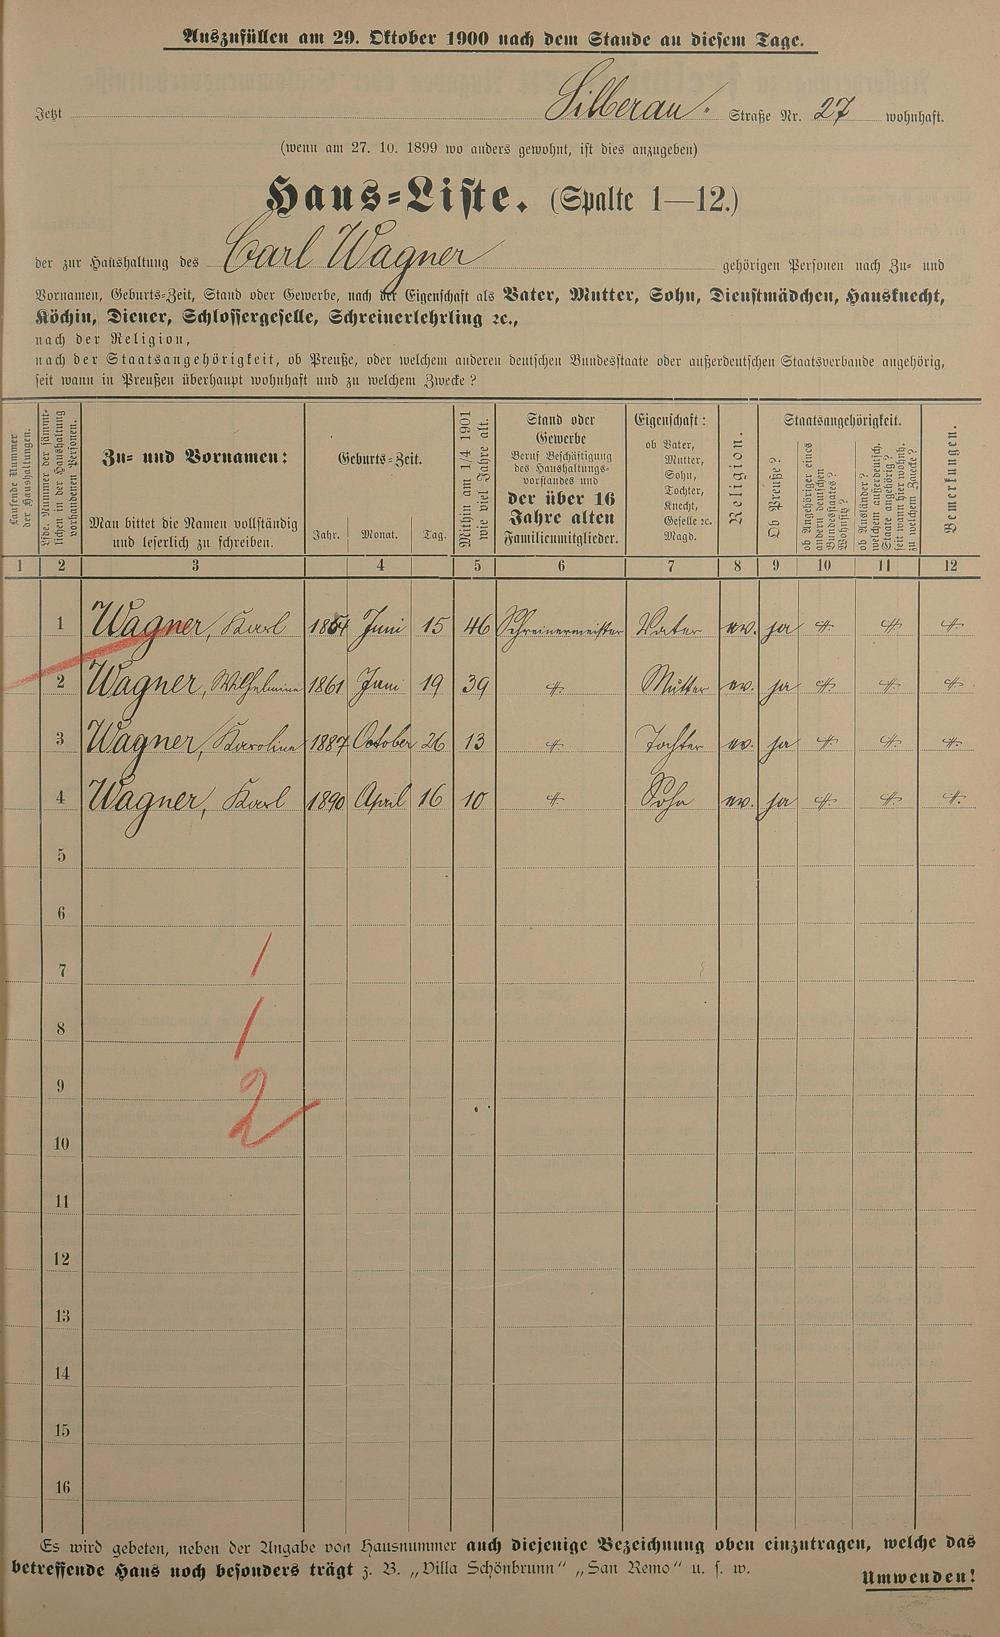 Auszufüllen am 29. Oktober 1900 nach dem Stande an diesem Tage.
Jetzt Silberau. Straße Nr. 27 wohnhaft.
(wenn am 27. 10. 1899 wo anders gewohnt, ist dies anzugeben)
Haus=Liste. (Spalte 1—12.)
der zur Haushaltung des Carl Wagner gehörigen Personen nach Zu- und
Vornamen, Geburts=Zeit, Stand oder Gewerbe, nach der Eigenschaft als Vater, Mutter, Sohn, Dienstmädchen, Hausknecht,
Köchin, Diener, Schlossergeselle, Schreinerlehrling ꝛc.,
nach der Religion,
nach der Staatsangehörigkeit, ob Preuße, oder welchem anderen deutschen Bundesstaate oder außerdeutschen Staatsverbande angehörig,
seit wann in Preußen überhaupt wohnhaft und zu welchem Zwecke?
Laufende Nummer der Haushaltungen.
Lfde. Nummer der sämmtlichen in der Haushaltung vorhandenen Personen.
Zu= und Vornamen:
Man bittet die Namen vollständig
und leserlich zu schreiben.
Geburts=Zeit.
Jahr. Monat. Tag.
Mithin am 1/4 1901 wie viel Jahre alt.
Stand oder
Gewerbe
Beruf Beschäftigung
des Haushaltungs-
vorstandes und
der über 16
Jahre alten
Familienmitglieder.
Eigenschaft:
ob Vater,
Mutter,
Sohn,
Tochter,
Knecht,
Geselle ꝛc.
Magd.
Religion.
Staatsangehörigkeit.
Ob Preuße?
ob Angehöriger eines andern deutschen Bundesstaates? Wohnsitz?
ob Ausländer? welchem außerdeutsch. Staate angehörig? seit wann hier wohnh. zu welchem Zwecke?
Bemerkungen.
1 2 3 4 5 6 7 8 9 10 11 12
1 Wagner, Karl 1854 Juni 15 46 Schreinermeister Vater ev. ja
2 Wagner, Wilhelmine 1861 Juni 19 39 Mutter ev. ja
3 Wagner, Karoline 1887 October 26 13 Tochter ev. ja
4 Wagner, Karl 1890 April 16 10 Sohn ev. ja
5
6
7 1
8 1
9 2
10
11
12
13
14
15
16
Es wird gebeten, neben der Angabe von Hausnummer auch diejenige Bezeichnung oben einzutragen, welche das
betreffende Haus noch besonders trägt z. B. „Villa Schönbrunn" „San Remo" u. s. w.
Umwenden!